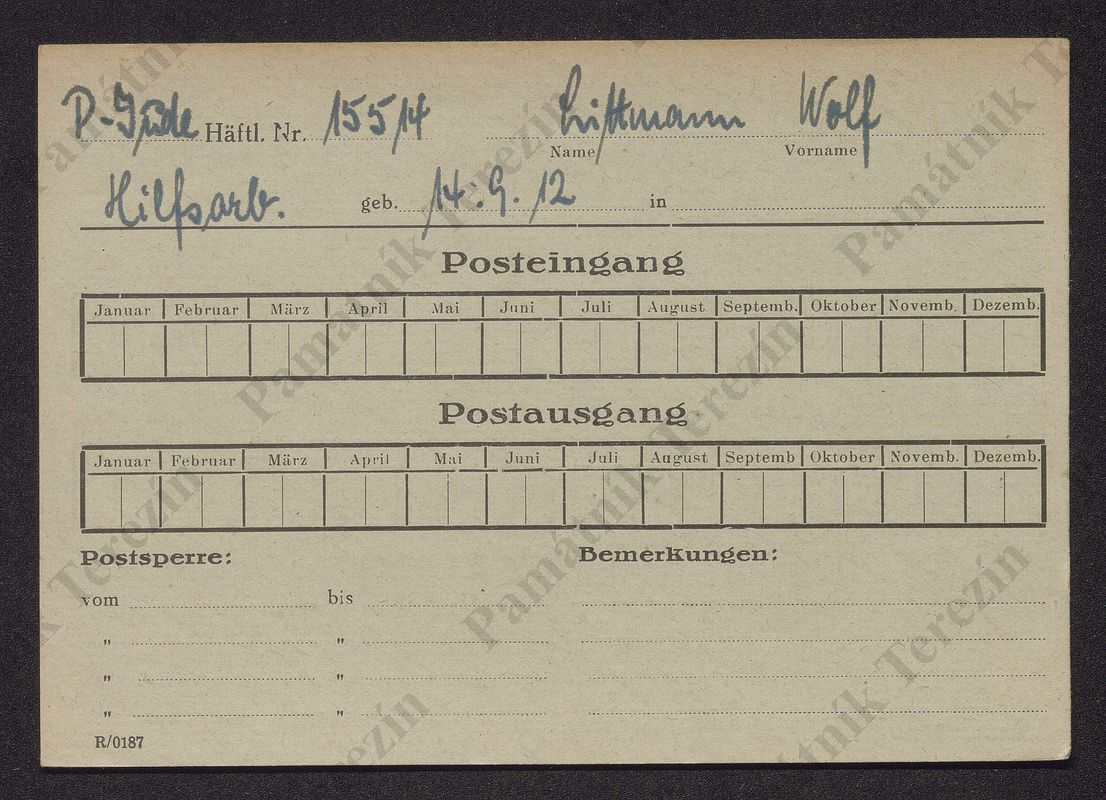 P-Jude Häftl. Nr. 15514 Littmann Wolf
Name Vorname
Hilfsarb. geb. 14.9.12 in
Posteingang
Januar Februar März April Mai Juni Juli August Septemb. Oktober Novemb. Dezemb.
Postausgang
Januar Februar März April Mai Juni Juli August Septemb Oktober Novemb. Dezemb.
Postsperre: Bemerkungen:
vom bis
" "
" "
" "
R/0187
Památník Terezín